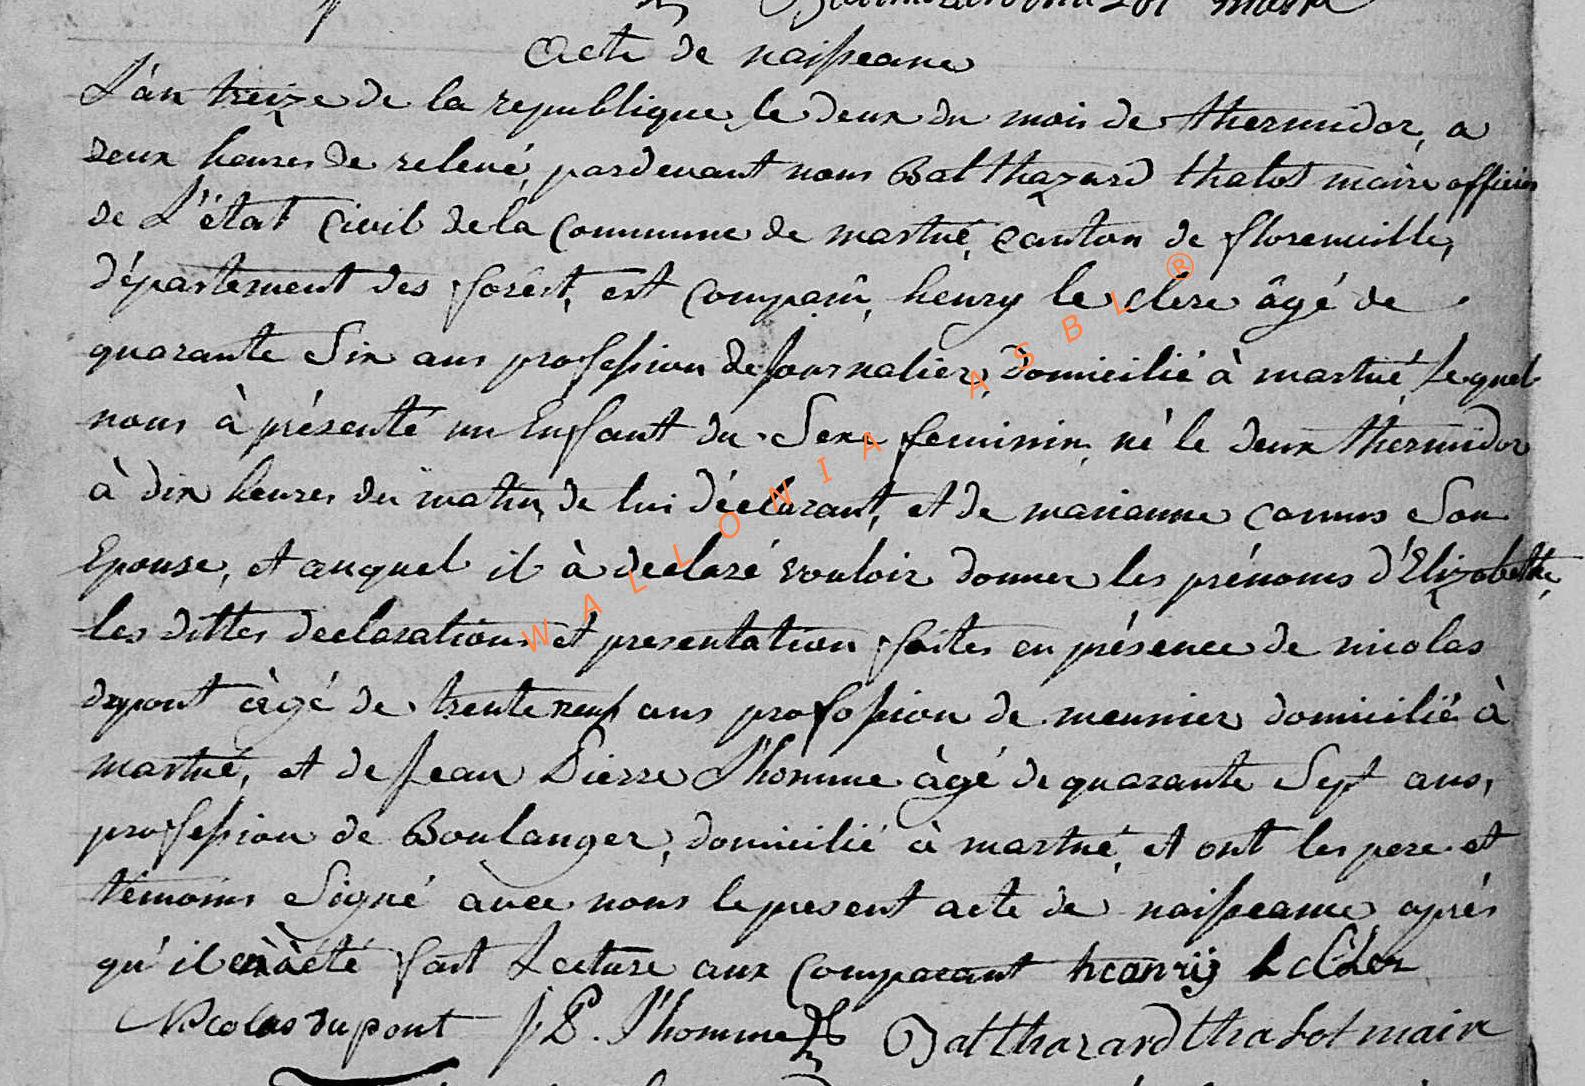 Balthazard thalot maire
Acte de naisseance
L'àn treize de la republique, le deux du mois de thermidor, a
deux heures de relevé, pardevant nous Balthazard thalot maire officier
de L'état Civil de la Commune de martué, Canton de florenville,
département des forêst, est comparû, henry le clere âgé de
quarante Six ans profession de journalier, domicilié à martué, Lequel
nous à présenté un Enfant du Sexe feminin, né le deux thermidor
à dix heures du matin, de lui déclarant, et de marianne camus Son
Epouse, et auquel il à declaré vouloir donner les prénoms d'Elizabethe,
les dittes declarations et presentation faites en présence de nicolas
dupont àgé de trente neuf ans profession de meunier domicilié à
martué, et de jean Pierre L'homme àgé de quarante Sept ans,
profession de Boulanger, domicilié à martué, et ont les pere et
témoins Signé àvec nous le present acte de naisseance après
qu'il en à été fait Lecture aux Comparant henrij le Cler
Nicolas dupont j P. l'homme Balthazard thalot maire
WALLONIA ASBL ®